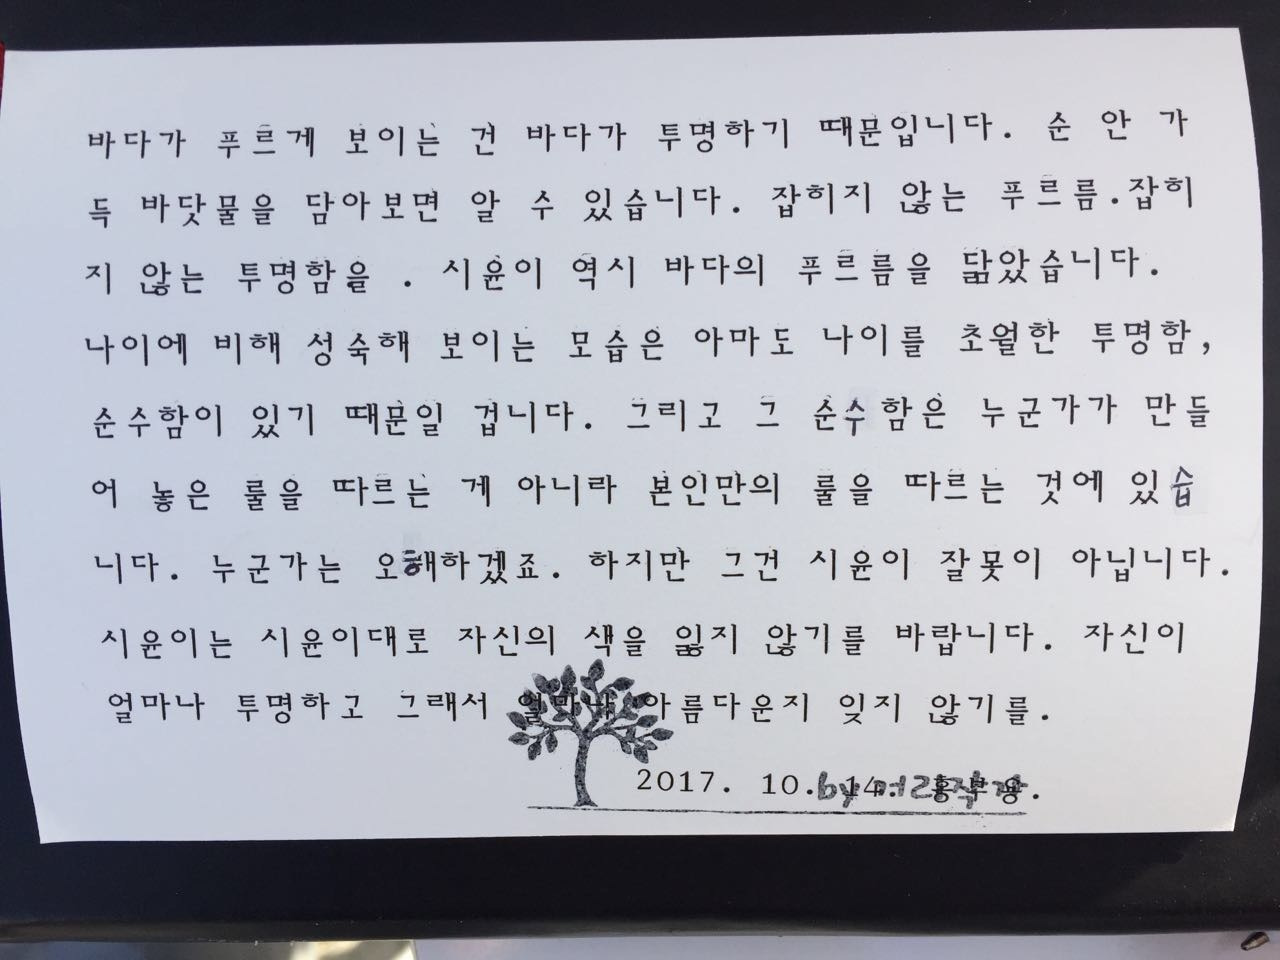 바다가 푸르게 보이는 건 바다가 투명하기 때문입니다. 순 안 가
득 바닷물을 담아보면 알 수 있습니다. 잡히지 않는 푸르름.잡히
지 않는 투명함을 . 시윤이 역시 바다의 푸르름을 닮았습니다.
나이에 비해 성숙해 보이는 모습은 아마도 나이를 초월한 투명함,
순수함이 있기 때문일 겁니다. 그리고 그 순수함은 누군가가 만들
어 놓은 룰을 따르는 게 아니라 본인만의 룰을 따르는 것에 있습
니다. 누군가는 오해하겠죠. 하지만 그건 시윤이 잘못이 아닙니다.
시윤이는 시윤이대로 자신의 색을 잃지 않기를 바랍니다. 자신이
얼마나 투명하고 그래서 얼마나 아름다운지 잊지 않기를.
2017. 10. 14. by